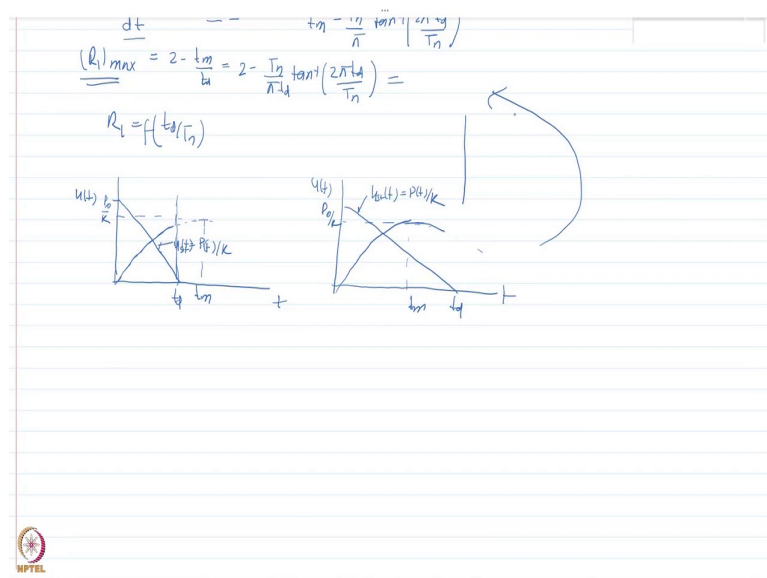 dt
tm = Tn/π tan⁻¹(2πtd/Tn)
(R1)max = 2 - tm/td = 2 - Tn/πtd tan⁻¹(2πtd/Tn) =
R1 = f(td/Tn)
u(t) P0/K
ust(t) = P(t)/K
td tm t
u(t) P0/K
ust(t) = P(t)/K
tm td t
NPTEL